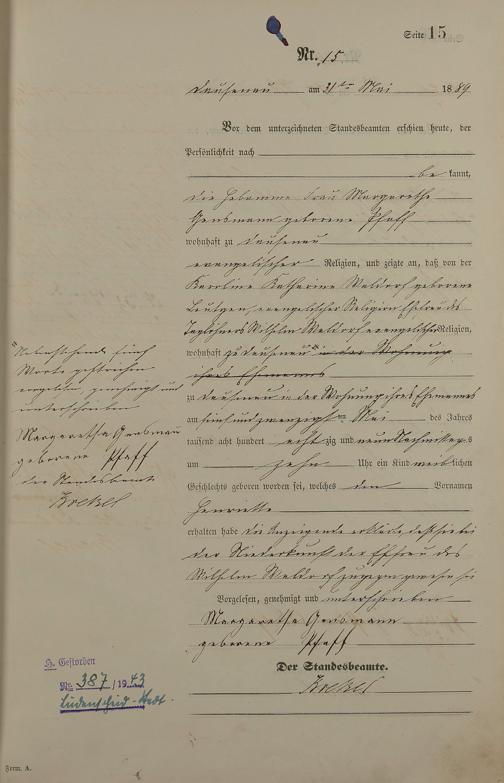 Seite 15
Nr. 15
Dausenau am 31ten Mai 1889
Vor dem unterzeichneten Standesbeamten erschien heute, der
Persönlichkeit nach
be kannt,
die Hebamme Frau Margarethe
Gensmann geborene Pfaff
wohnhaft zu Dausenau
evangelischer Religion, und zeigte an, daß von der
Karoline Katharine Waldorf geborene
evangelischer Religion Ehefrau des
Taglöhners Wilhelm Waldorf evangelischer Religion,
wohnhaft zu Dausenau in der Wohnung
ihres Ehemannes
zu Dausenau in der Wohnung ihres Ehemannes
am fünf und zwanzigsten Mai des Jahres
tausend acht hundert acht zig und neun Nachmittags
um zehn Uhr ein Kind weib lichen
Geschlechts geboren worden sei, welches den Vornamen
Henriette
erhalten habe die Anzeigende erklärte, daß sie bei
der Niederkunft der Ehefrau des
Wilhelm Waldorf zugegen gewesen sei
Vorgelesen, genehmigt und unterschrieben
Margaretha Gensmann
geborene Pfaff
Der Standesbeamte.
Krekel
Nebenstehende fünf
Worte gestrichen
vorgelesen genehmigt und
unterschrieben
Margaretha Gensmann
geborene Pfaff
der Standesbeamte
Krekel
H. Gestorben
Nr. 387/1943
Lüdenscheid-Stadt.
Form. A.